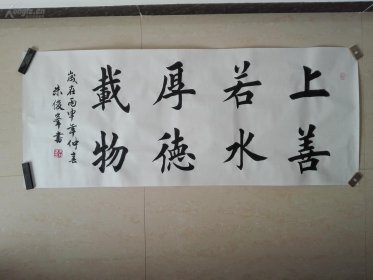 上善
若水
厚德
載物
歲在丙申年仲春
朱俊峯書